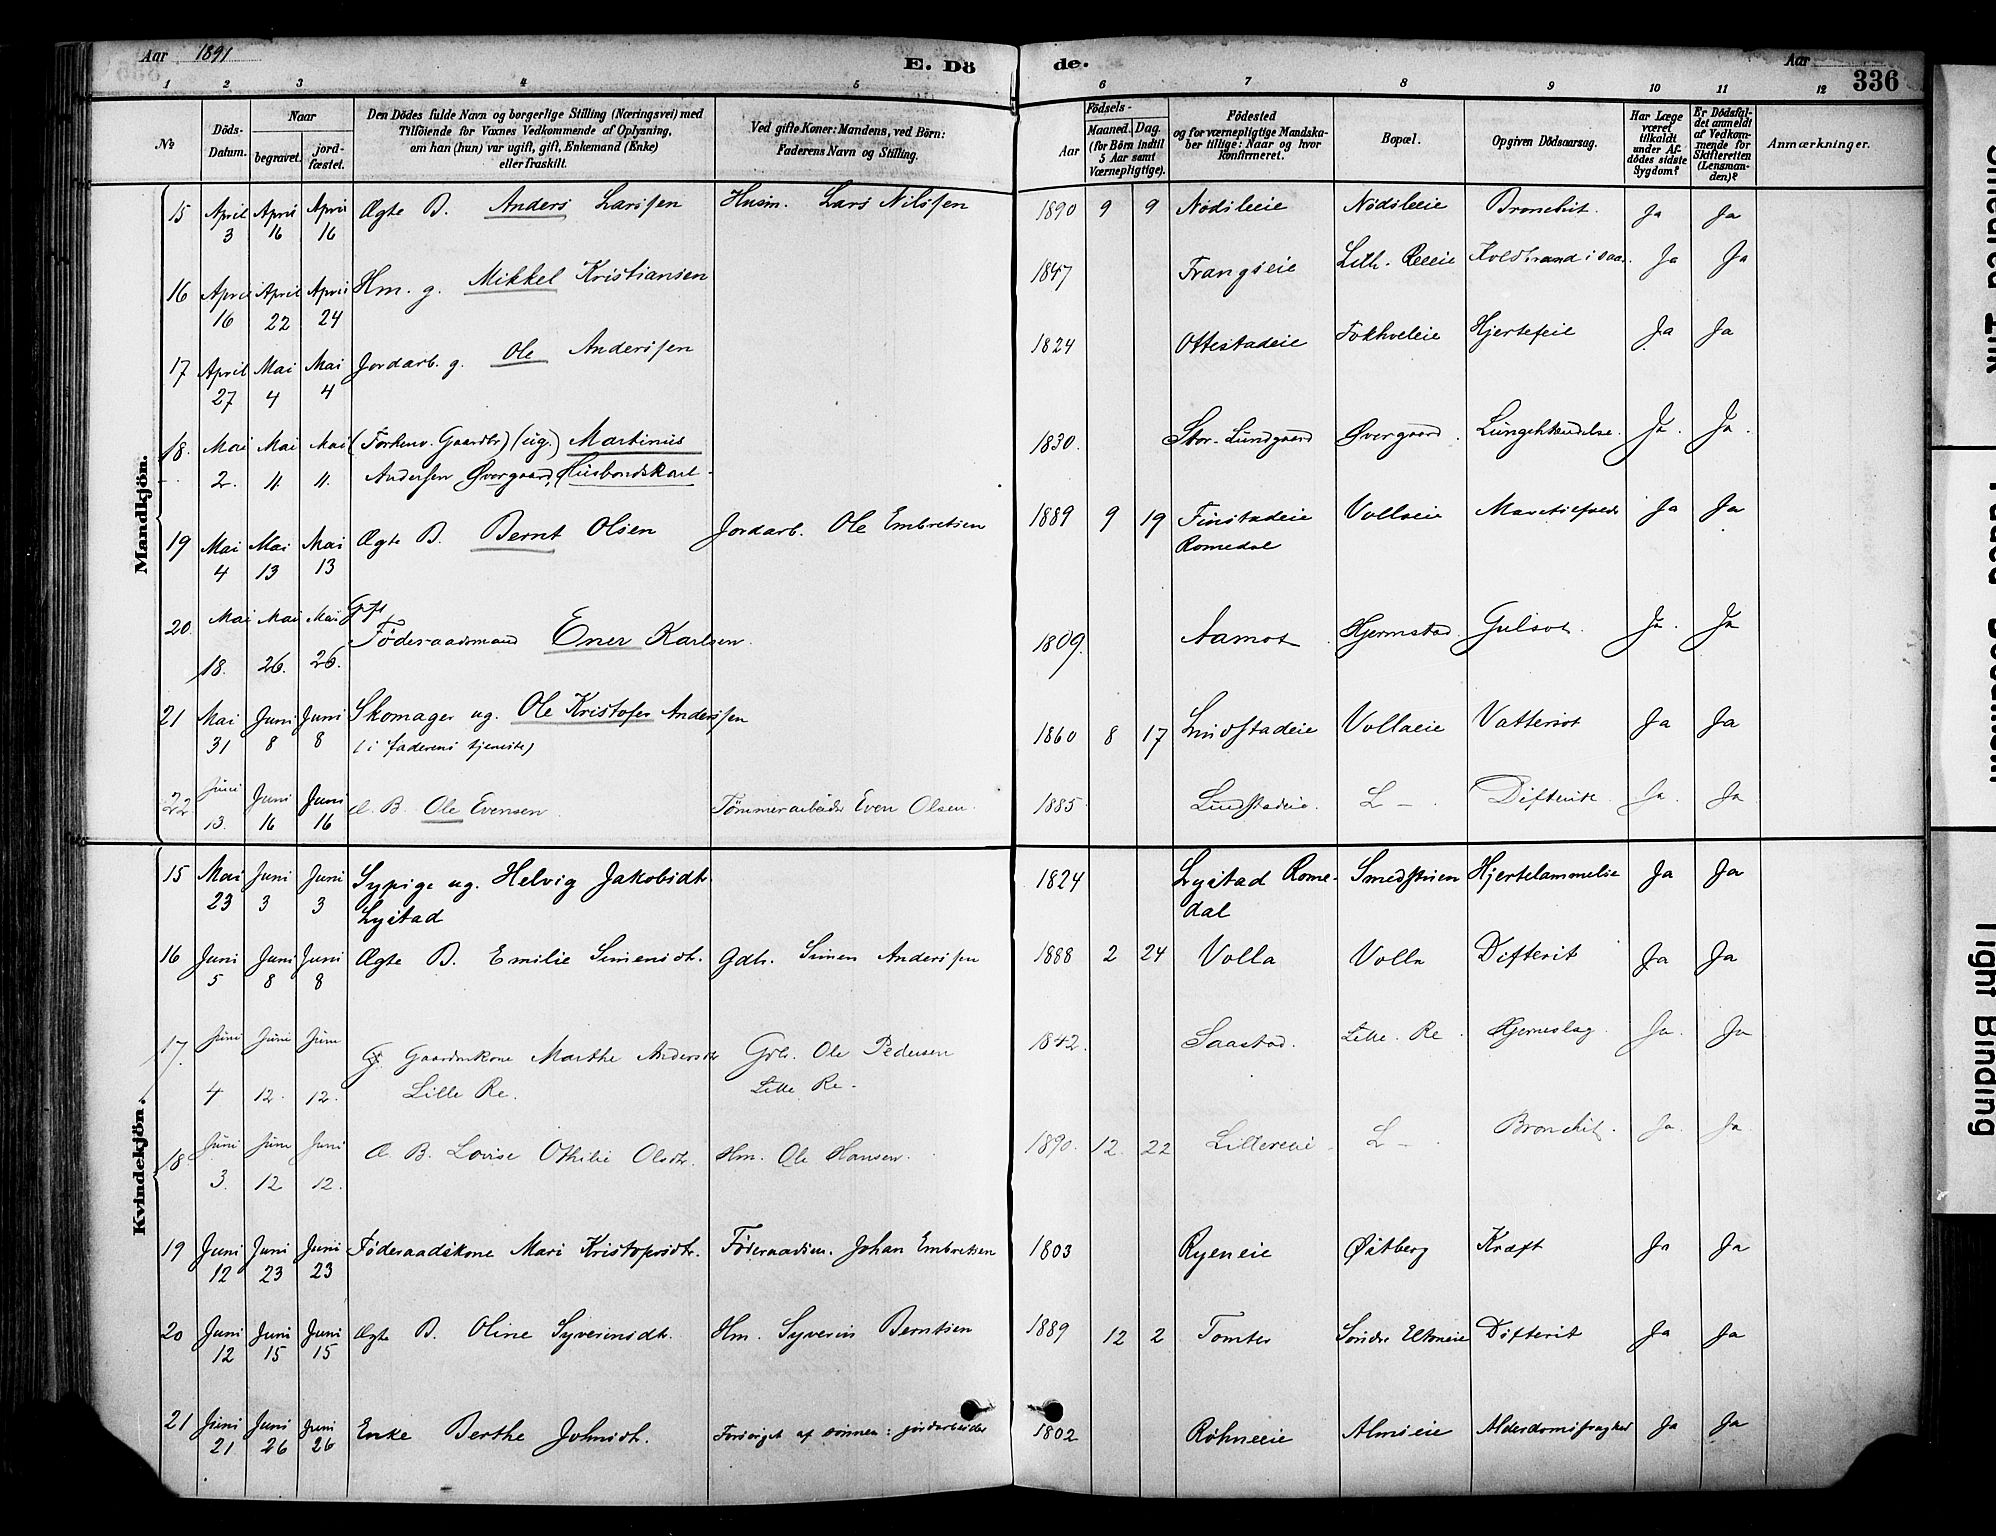 Aar 1891
E. Dö de.
Aar
336
1 2 3 4 5 6 7 8 9 10 11 12
No
Döds-Datum.
Naar
begravet.
jordfæstet.
Den Dödes fulde Navn og borgerlige Stilling (Næringsvei) med
Tilföiende for Voxnes Vedkommende af Oplysning,
om han (hun) var ugift, gift, Enkemand (Enke)
eller fraskilt.
Ved gifte Koner: Mandens, ved Börn:
Faderens Navn og Stilling.
Födsels-
Aar
Maaned. Dag.
(for Börn indtil
5 Aar samt
Værnepligtige).
Födested
og for værnepligtige Mandska-
ber tillige: Naar og hvor
konfirmeret.
Bopæl.
Opgiven Dödsaarsag.
Har Læge
været
tilkaldt
under Af-
dödes sidste
Sygdom?
Er Dödsfal-
det anmeldt
af Vedkom-
mende for
Skifteretten
(Lensman-
den)?
Anmærkninger.
Mandkjön.
15 April 3 April 16 April 16 Ægte B. Anders Larssen Husm. Lars Nilssen 1890 9 9 Nødsleeie Nødsleeie Bronchit. Ja Ja
16 April 16 April 22 April 24 Hm. g. Mikkel Kristiansen 1847 Frangseie Lill. Reeie Koldbrand i saar Ja Ja
17 April 27 Mai 4 Mai 4 Jordarb. g. Ole Anderssen 1824 Ottestadeie Fokhveleie Hjertefeil Ja Ja
18. Mai 2. Mai 11. Mai 11. (Forhenv. Gaardbr) (ug.) Martinus 1830. Stor-Lundgaard Øvergaard. Ja. Ja.
Andersen Øvergaard, Husbondskarl
19 Mai 4 Mai 13 Mai 13 Ægte B. Bernt Olsen Jordarb. Ole Embretsen 1889 9 19 Finstadeie Vollaeie Ja Ja
Romedal
20. Mai 18. Mai 26. Mai 26. Gift
Föderaadsmand Ener Karlsen. 1809. Aamot Hjermstad. Gulsot. Ja. Ja
21 Mai 31 Juni 8 Juni 8 Skomager ug. Ole Kristofer Anderssen 1860 8 17 Lundstadeie Vollaeie Vattersot Ja Ja
(i faderens tjeneste)
22 Juni 13. Juni 16 Juni 16 Æ. B. Ole Evensen. Tømmerarbeider Even Olsen. 1885. Lundstadeie. L - . Difterite. Ja. Ja
Kvindekjön.
15 Mai 23 Juni 3 Juni 3 Sypige ug. Helvig Jakobsdtr 1824 Lystad Rome- Smedstuen Hjertelammelse Ja Ja
Lystad dal
16 Juni 5 Juni 8 Juni 8 Ægte B. Emilie Simensdt. Gdb. Simen Anderssen 1888 2 24 Volla Volla Difterit Ja Ja
17. Juni 4 Juni 12. Juni 12. G. Gaardmkone Marthe Andersdtr Grbr. Ole Pedersen 1842. Saastad. Lille. Re. Hjerneslag. Ja. Ja
Lille Re. Lille Re.
18 Juni 3. Juni 12 Juni 12. Æ. B. Lovise Othilie Olsdtr. Hm. Ole Hansen. 1890. 12. 22 Lillereeie L - . Bronchit. Ja. Ja.
19 Juni 12 Juni 23 Juni 23 Föderaadskone Mari Kristofersdtr. Föderaadsm. Johan Embretsen 1803 Ryeneie Østberg Kræft Ja Ja
20 Juni 12 Juni 15 Juni 15 Ægte B. Oline Syverinsdtr. Hm. Syverin Berntsen 1889 12 2 Tomter Søndre Eltoneie Difterit Ja Ja
21 Juni 21 Juni 26 Juni 26 Enke Berthe Johnsdt. Forsörget af sönnen: jordarbeider 1802 Röhneeie Almseie Alderdomssvaghed Ja Ja
Tight Binding